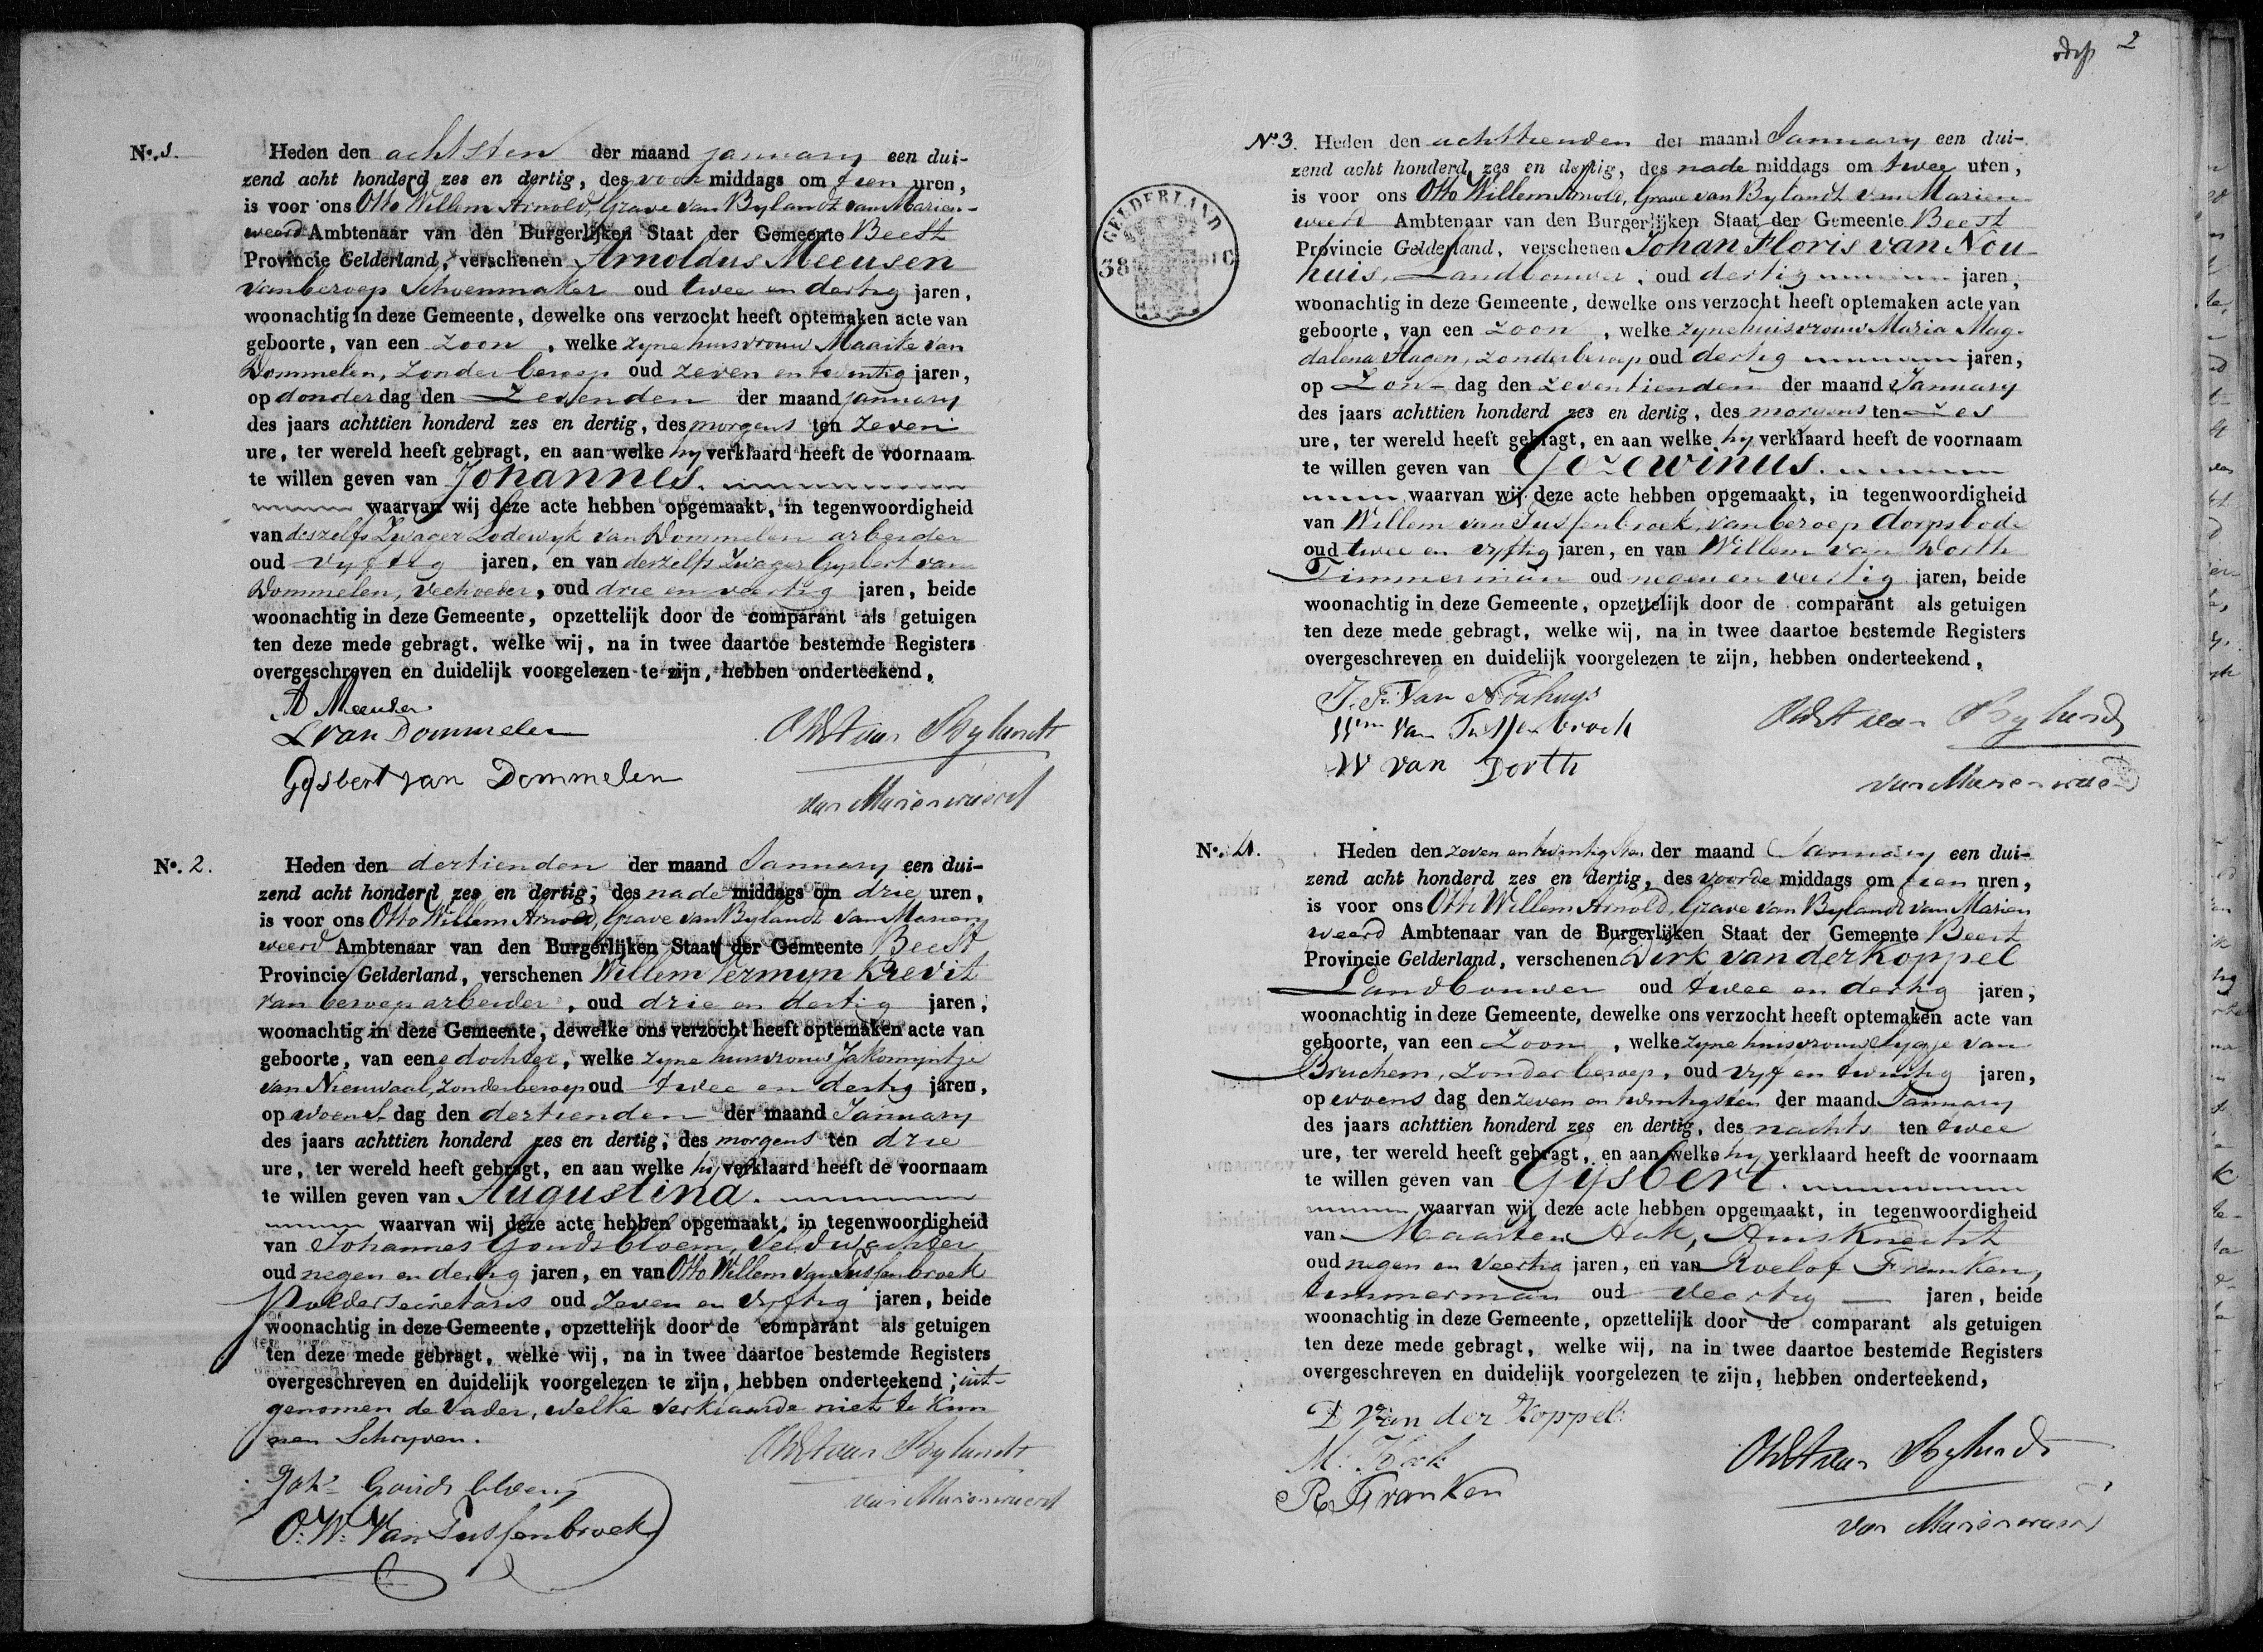 No. 1.
Heden den achtsten der maand january een dui-
zend acht honderd zes en dertig, des voor middags om tien uren,
is voor ons Otto Willem Arnold, Grave van Bylandt van Marien-
weerd Ambtenaar van den Burgerlijken Staat der Gemeente Beest
Provincie Gelderland, verschenen Arnoldus Meeusen
van beroep Schoenmaker oud twee en dertig jaren,
woonachtig in deze Gemeente, dewelke ons verzocht heeft optemaken acte van
geboorte, van een zoon, welke zyne huisvrouw Maaike van
Dommelen, zonder beroep oud zeven en twintig jaren,
op donder dag den Zevenden der maand january
des jaars achttien honderd zes en dertig, des morgens ten zeven
ure, ter wereld heeft gebragt, en aan welke hy verklaard heeft de voornaam
te willen geven van Johannes.
waarvan wij deze acte hebben opgemaakt, in tegenwoordigheid
van deszelfs Zwager Lodewyk van Dommelen arbeider
oud vyftig jaren, en van deszelfs Zwager Gysbert van
Dommelen, veehoeder, oud drie en veertig jaren, beide
woonachtig in deze Gemeente, opzettelijk door de comparant als getuigen
ten deze mede gebragt, welke wij, na in twee daartoe bestemde Registers
overgeschreven en duidelijk voorgelezen te zijn, hebben onderteekend,
A Meeusen
L van Dommelen
Gysbert van Dommelen
van Bylandt
van Marienweerd
No. 2.
Heden den dertienden der maand January een dui-
zend acht honderd zes en dertig, des nade middags om drie uren,
is voor ons Otto Willem Arnold, Grave van Bylandt van Marien
weerd Ambtenaar van den Burgerlijken Staat der Gemeente Beest
Provincie Gelderland, verschenen Willem Vermeyn Krevit
van beroep arbeider, oud drie en dertig jaren,
woonachtig in deze Gemeente, dewelke ons verzocht heeft optemaken acte van
geboorte, van eene dochter, welke zyne huisvrouw Jakomyntje
van Nieuwaal, zonder beroep oud twee en dertig jaren,
op woens dag den dertienden der maand January
des jaars achttien honderd zes en dertig, des morgens ten drie
ure, ter wereld heeft gebragt, en aan welke hy verklaard heeft de voornaam
te willen geven van Augustina.
waarvan wij deze acte hebben opgemaakt, in tegenwoordigheid
van Johannes Goudsbloem, veldwachter
oud negen en dertig jaren, en van Otto Willem van Tussenbroek
Poldersecretaris oud zeven en vyftig jaren, beide
woonachtig in deze Gemeente, opzettelijk door de comparant als getuigen
ten deze mede gebragt, welke wij, na in twee daartoe bestemde Registers
overgeschreven en duidelijk voorgelezen te zijn, hebben onderteekend; uit-
genomen de Vader, welke verklaarde niet te kun
nen Schryven.
Joh Goudsbloem
O: W: Van Tussenbroek
van Bylandt
van Marienweerd
2
GELDERLAND
38
No 3. Heden den achttienden der maand January een dui-
zend acht honderd zes en dertig, des nade middags om twee uren,
is voor ons Otto Willem Arnold, Grave van Bylandt van Marien
weerd Ambtenaar van den Burgerlijken Staat der Gemeente Beest
Provincie Gelderland, verschenen Johan Floris van Nou
huis, Landbouwer, oud dertig jaren,
woonachtig in deze Gemeente, dewelke ons verzocht heeft optemaken acte van
geboorte, van een zoon, welke zyne huisvrouw Maria Mag-
dalena Hagen, zonder beroep oud dertig jaren,
op Zon- dag den zeventienden der maand January
des jaars achttien honderd zes en dertig, des morgens ten zes
ure, ter wereld heeft gebragt, en aan welke hy verklaard heeft de voornaam
te willen geven van Gozewinus.
waarvan wij deze acte hebben opgemaakt, in tegenwoordigheid
van Willem van Tussenbroek, van beroep dorpsbode
oud twee en vyftig jaren, en van Willem van Dorth
Timmerman oud negen en veertig jaren, beide
woonachtig in deze Gemeente, opzettelijk door de comparant als getuigen
ten deze mede gebragt, welke wij, na in twee daartoe bestemde Registers
overgeschreven en duidelijk voorgelezen te zijn, hebben onderteekend,
J. F. Van Nouhuys
Wm Van Tussenbroek
W van Dorth
van Bylandt
van Marienwaerd
No. 4.
Heden den zeven en twintigsten der maand January een dui-
zend acht honderd zes en dertig, des voorde middags om tien uren,
is voor ons Otto Willem Arnold, Grave van Bylandt van Marien
weerd Ambtenaar van de Burgerlijken Staat der Gemeente Beest
Provincie Gelderland, verschenen Dirk van der Koppel
Landbouwer oud twee en dertig jaren,
woonachtig in deze Gemeente, dewelke ons verzocht heeft optemaken acte van
geboorte, van een Zoon, welke zyne huisvrouw van
Bruchem, zonder beroep, oud vyf en twintig jaren,
op woens dag den zeven en twintigsten der maand January
des jaars achttien honderd zes en dertig, des nachts ten twee
ure, ter wereld heeft gebragt, en aan welke hy verklaard heeft de voornaam
te willen geven van Gijsbert.
waarvan wij deze acte hebben opgemaakt, in tegenwoordigheid
van Maarten
oud negen en veertig jaren, en van Roelof Franken,
timmerman oud veertig jaren, beide
woonachtig in deze Gemeente, opzettelijk door de comparant als getuigen
ten deze mede gebragt, welke wij, na in twee daartoe bestemde Registers
overgeschreven en duidelijk voorgelezen te zijn, hebben onderteekend,
D Van der Koppel
R Franken
van Bylandt
van Marienwaerd